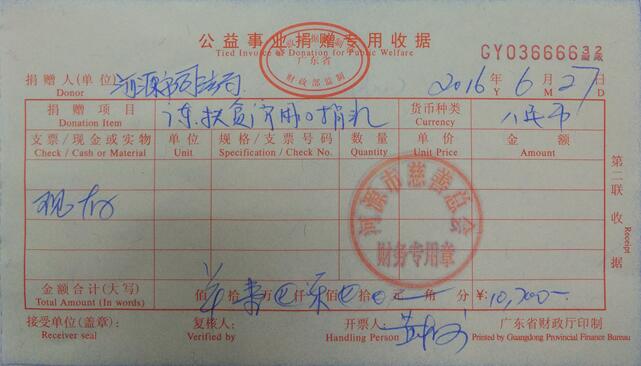 公益事业捐赠专用收据
Tied Invoice to Donation for Public Welfare
广东省
财政部监制
GY03666632
捐赠人(单位) 河源市司法局 2016年 6月 27日
Donor Y M D
捐赠项目 货币种类 人民币
Donation Item Currency
支票/现金或实物 单位 规格/支票号码 数量 单价 金额
Check / Cash or Material Unit Specification / Check No. Quantity Unit Price Amount
现金
河源市慈善总会
财务专用章
金额合计(大写) 佰 拾 万 仟 佰 拾 元 角 分 ¥: 10,700-
Total Amount (In words)
接受单位(盖章): 复核人: 开票人: 广东省财政厅印制
Receiver seal Verified by Handling Person Printed by Guangdong Provincial Finance Bureau
第二联 收据 Receipt